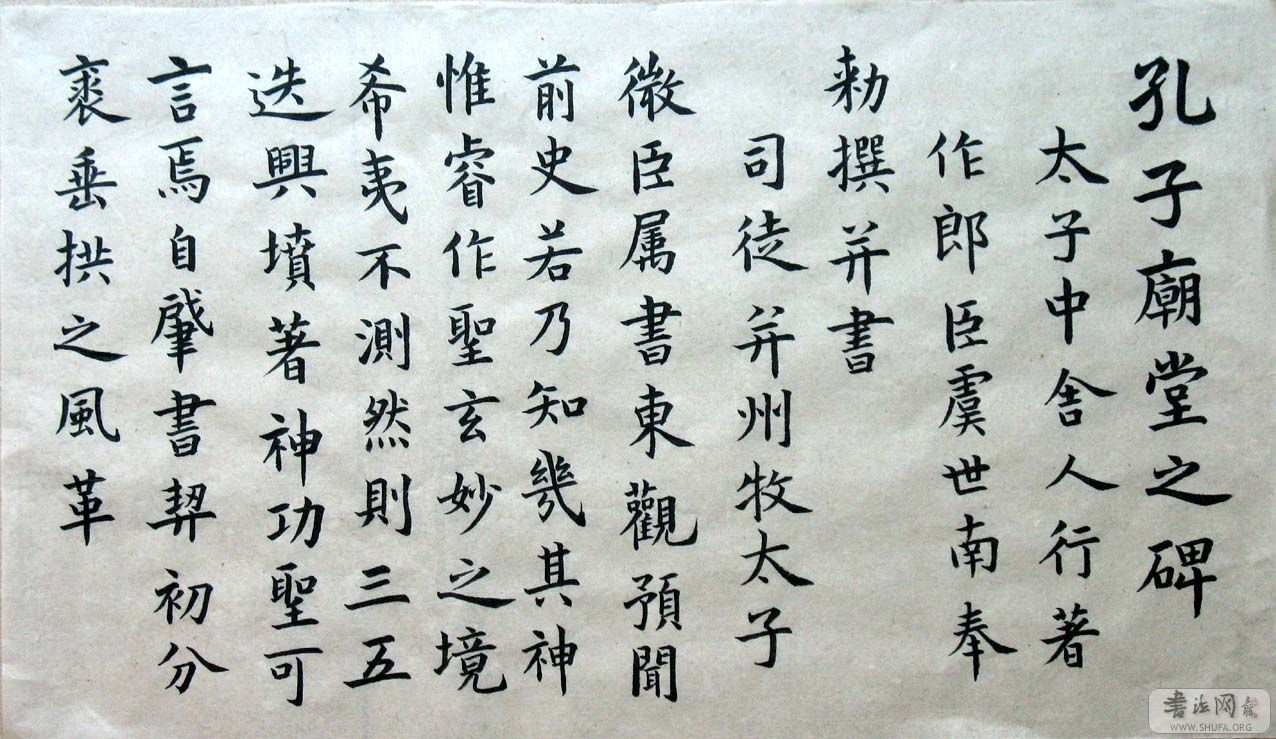 孔子廟堂之碑
太子中舍人行著
作郎臣虞世南奉
勅撰并書
司徒并州牧太子
微臣属書東觀預聞
前史若乃知幾其神
惟睿作聖玄妙之境
希夷不測然則三五
迭興墳著神功聖可
言焉自肇書契初分
裘垂拱之風革
書法网
WWW.SHUFA.ORG